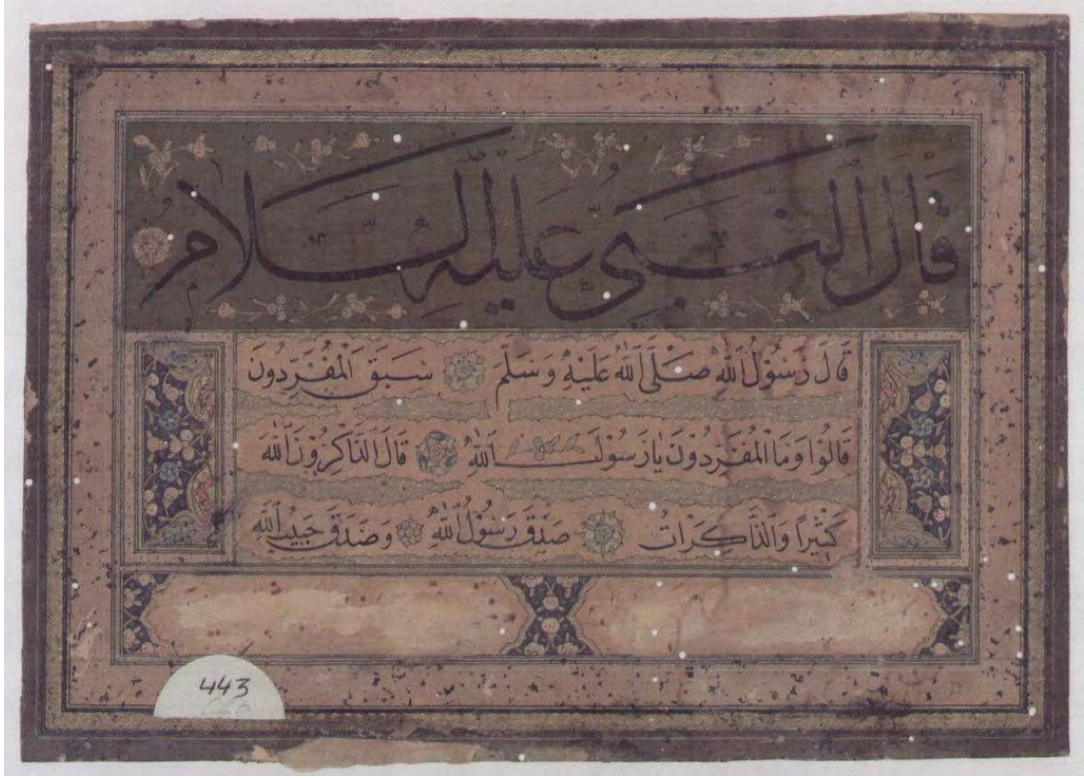 قَالَ النَّبِيُّ عَلَيْهِ السَّلَامُ
قَالَ رَسُولُ اللهِ صَلَّى اللهُ عَلَيْهِ وَسَلَّمَ سَبَقَ الْمُفَرِّدُونَ
قَالُوا وَمَا الْمُفَرِّدُونَ يَا رَسُولَ اللهِ قَالَ الذَّاكِرُونَ اللهَ
كَثِيرًا وَالذَّاكِرَاتُ صَدَقَ رَسُولُ اللهِ وَصَدَقَ حَبِيبُ اللهِ
443